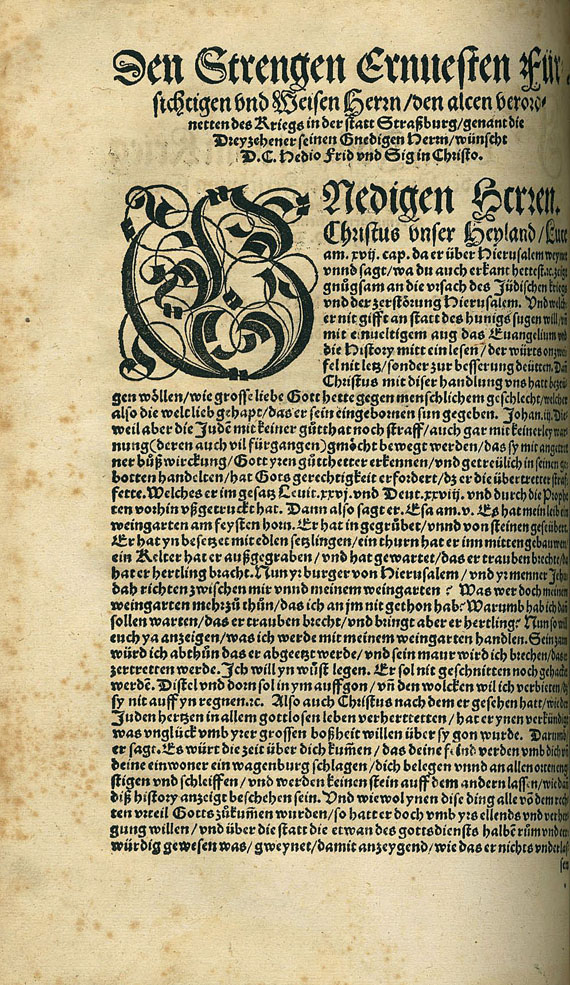 Den Strengen Ernuesten Für
sichtigen vnd Weisen Herrn/den alten veror⸗
netten des Kriegs in der statt Straßburg/genant die
Dreyzehener seinen Gnedigen Herrn/wünscht
D.C. Hedio Frid vnd Sig in Christo.
GNedigen Herren.
Christus vnser Heyland/Luce
am. xvij. cap. da er über Hierusalem weynet
vnnd sagt/wa du auch erkant hettest.ꝛc. zeigt
gnůgsam an die vrsach des Jüdischen kriegs
vnd der zerstörung Hierusalem. Vnd welcher
er nit gifft an statt des hunigs sugen will/
mit einueltigem aug das Euangelium vnd
die History mitt einlesen/der würts on zwei
fel nit letz/sonder zur besserung deütten. Dañ
Christus mit diser handlung vns hatt bezeü
gen wöllen/wie grosse liebe Gott hette gegen menschlichem geschlecht/welcher
also die welt lieb gehapt/das er sein eingebornen sun gegeben. Johan.iij. Die
weil aber die Judē mit keiner gůtthat noch straff/auch gar mit keinerley war⸗
nung(deren auch vil fürgangen)gmöcht bewegt werden/das sy mit angetret
ner bůßwirckung/Gott yren gůtthetter erkennen/vnd getreülich in seinen ge
botten handelten/hat Gots gerechtigkeit erfordert/dz er die übertretter straf
fette. Welches er im gesatz Leuit.xxvj. vnd Deut.xxviij. vnd durch die Prophe
ten vorhin vßgetruckt hat. Dann also sagt er. Esa am. v. Es hat mein lieb ein
weingarten am feysten horn. Er hat in gegrůbet/vnnd von steinen gestübert
Er hat yn besetzt mit edlen setzlingen/ein thurn hat er inn mitten gebauwen/
ein Kelter hat er außgegraben/vnd hat gewartet/das er trauben brechte/da
hat er hertling bracht. Nun yr burger von Hierusalem/vnd yr menner Jehu
dah richten zwischen mir vnnd meinem weingarten? Was wer doch meinem
weingarten mehr zů thůn/das ich an jm nit gethon hab: Warumb hab ich dañ
sollen warten/das er trauben brecht/vnd bringt aber er hertling? Nun so will
euch ya anzeigen/was ich werde mit meinem weingarten handlen. Sein zaun
würd ich abthůn das er abgeetzt werde/vnd sein maur wird ich brechen/das er
zertretten werde. Ich will yn wůst legen. Er sol nit geschnitten noch gehackt
werdē. Distel vnd dorn sol in ym auffgon/vñ den wolcken wil ich verbieten/dz
sy nit auff yn regnen.ꝛc. Also auch Christus nach dem er gesehen hatt/wie der
Juden hertzen in allem gottlosen leben verhertretten/hat er ynen verkündigt
was vnglück vmb yrer grossen boßheit willen über sy gon wurde. Darumb
er sagt. Es würt die zeit über dich kum̄en/das deine feind werden vmb dich vñ
deine einwoner ein wagenburg schlagen/dich belegen vnnd an allen orten eng
stigen vnd schleiffen/vnd werden keinen stein auff dem andern lassen/wie dañ
diß history anzeigt beschehen sein. Vnd wiewol ynen dise ding alle vō dem rech
ten vrteil Gotts zůkum̄en wurden/so hatt er doch vmb yrs ellends vnd verher
gung willen/vnd über die statt die etwan des gottsdiensts halbē rům vnd
würdig gewesen was/gweynet/damit anzeygend/wie das er nichts vnderlas
sen